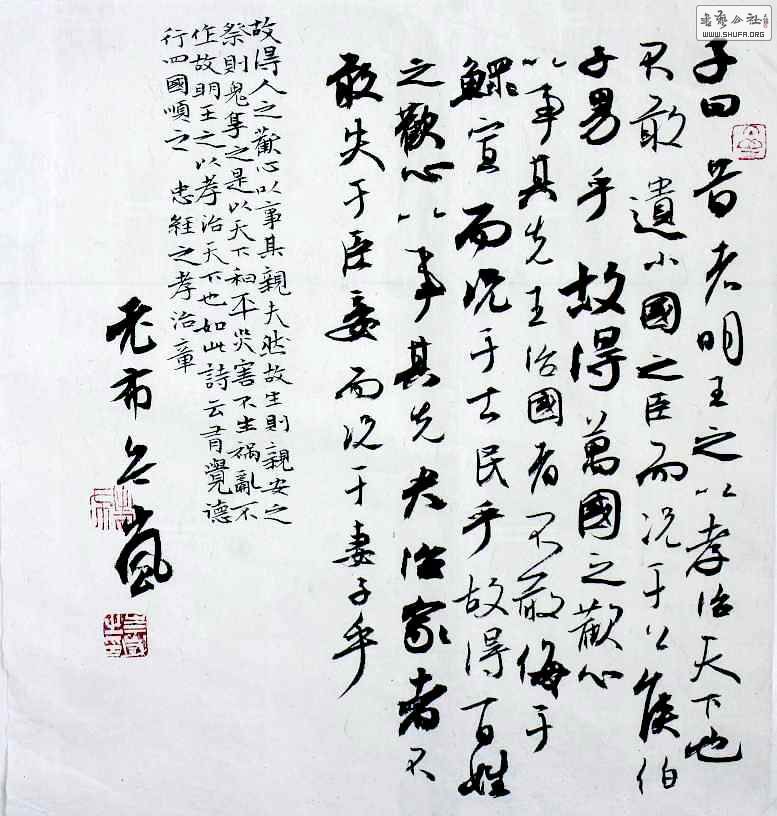 書藝公社
WWW.SHUFA.ORG
子曰昔者明王之以孝治天下也
不敢遺小國之臣而況于公侯伯
子男乎故得萬國之歡心
以事其先王治國者不敢侮于
鰥寡而況于士民乎故得百姓
之歡心以事其先夫治家者不
敢失于臣妾而況于妻子乎
故得人之歡心以事其親夫然故生則親安之
祭則鬼享之是以天下和平災害不生禍亂不
作故明王之以孝治天下也如此詩云有覺德
行四國順之 忠經之孝治章